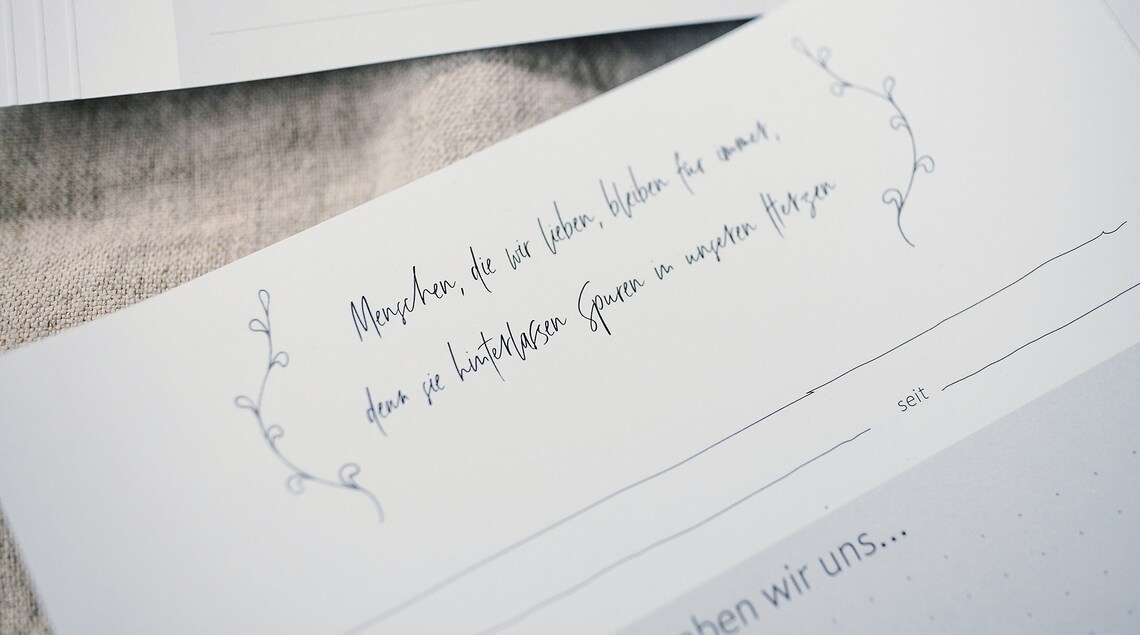 Menschen, die wir lieben, bleiben für immer,
denn sie hinterlassen Spuren in unseren Herzen
seit
wir uns...